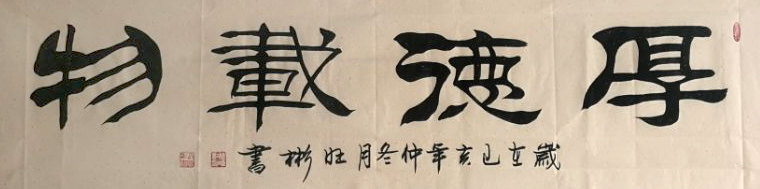 厚德載物
歲在己亥年仲冬月旺彬書